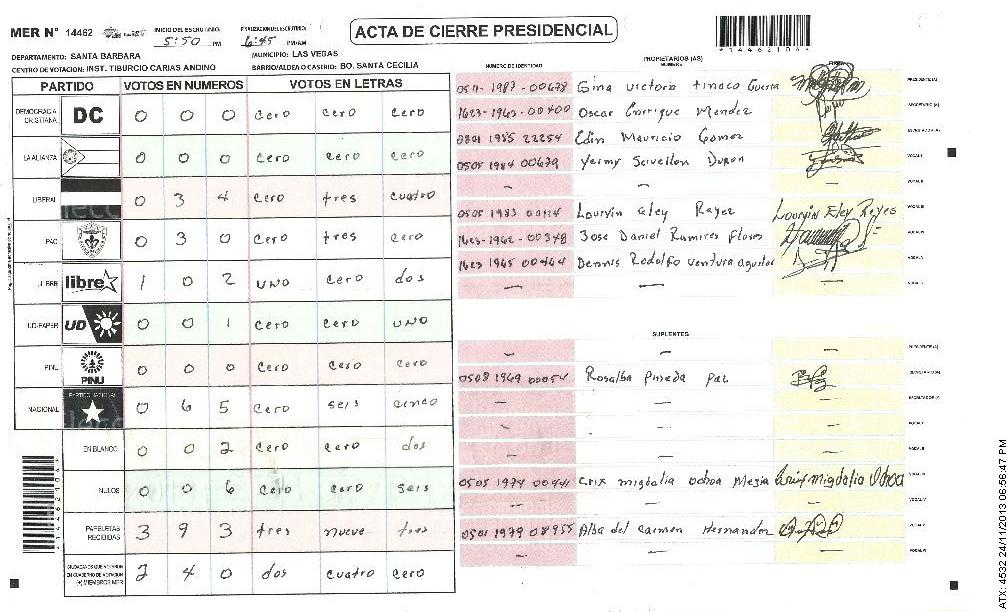 MER N° 14462
INICIO DEL ESCRUTINIO: 5:50 PM
FINALIZACION DEL ESCRUTINIO: 6:45 PM/AM
ACTA DE CIERRE PRESIDENCIAL
DEPARTAMENTO: SANTA BARBARA
MUNICIPIO: LAS VEGAS
CENTRO DE VOTACION: INST. TIBURCIO CARIAS ANDINO
BARRIO/ALDEA O CASERIO: BO. SANTA CECILIA
PARTIDO VOTOS EN NUMEROS VOTOS EN LETRAS
DEMOCRACIA CRISTIANA DC 0 0 0 cero cero cero
LA ALIANZA 0 0 0 cero cero cero
LIBERAL 0 3 4 cero tres cuatro
PAC 0 3 0 cero tres cero
LIBRE libre 1 0 2 uno cero dos
UD-FAPER UD 0 0 1 cero cero uno
PINU PINU 0 0 0 cero cero cero
NACIONAL PARTIDO NACIONAL 0 6 5 cero seis cinco
EN BLANCO 0 0 2 cero cero dos
NULOS 0 0 6 cero cero seis
PAPELETAS RECIBIDAS 3 9 3 tres nueve tres
CIUDADANOS QUE VOTARON EN CUADERNO DE VOTACION (+) MIEMBROS MER 2 4 0 dos cuatro cero
*14462106*
NUMERO DE IDENTIDAD PROPIETARIOS (AS) NOMBRE FIRMA
0511-1987-00678 Gina Victoria Tinoco Guerra PRESIDENTE(A)
1623-1963-00400 Oscar Enrique Mendez SECRETARIO (A)
0801 1985 22254 Edin Mauricio Gomez ESCRUTADOR (A)
0505 1984 00679 Yeimy Sevellon Duron VOCAL I
— — VOCAL II
0505 1983 00114 Lourvin Eley Reyes Lourvin Eley Reyes VOCAL III
1623-1962-00348 Jose Daniel Ramires Flores VOCAL IV
1623 1965 00464 Dennis Rodolfo Ventura Agustor VOCAL V
— —
SUPLENTES
— — — PRESIDENTE (A)
0508 1969 00054 Rosalba Pineda Paz SECRETARIO(A)
— — — ESCRUTADOR (A)
— — — VOCAL I
— — — VOCAL II
0505 1974 00441 Crix migdalia Ochoa Mejia migdalia Ochoa VOCAL III
— — — VOCAL IV
0501 1979 08955 Alba del Carmen Hernandez VOCAL V
— — — VOCAL VI
ATX: 4532 24/11/2013 06:56:47 PM